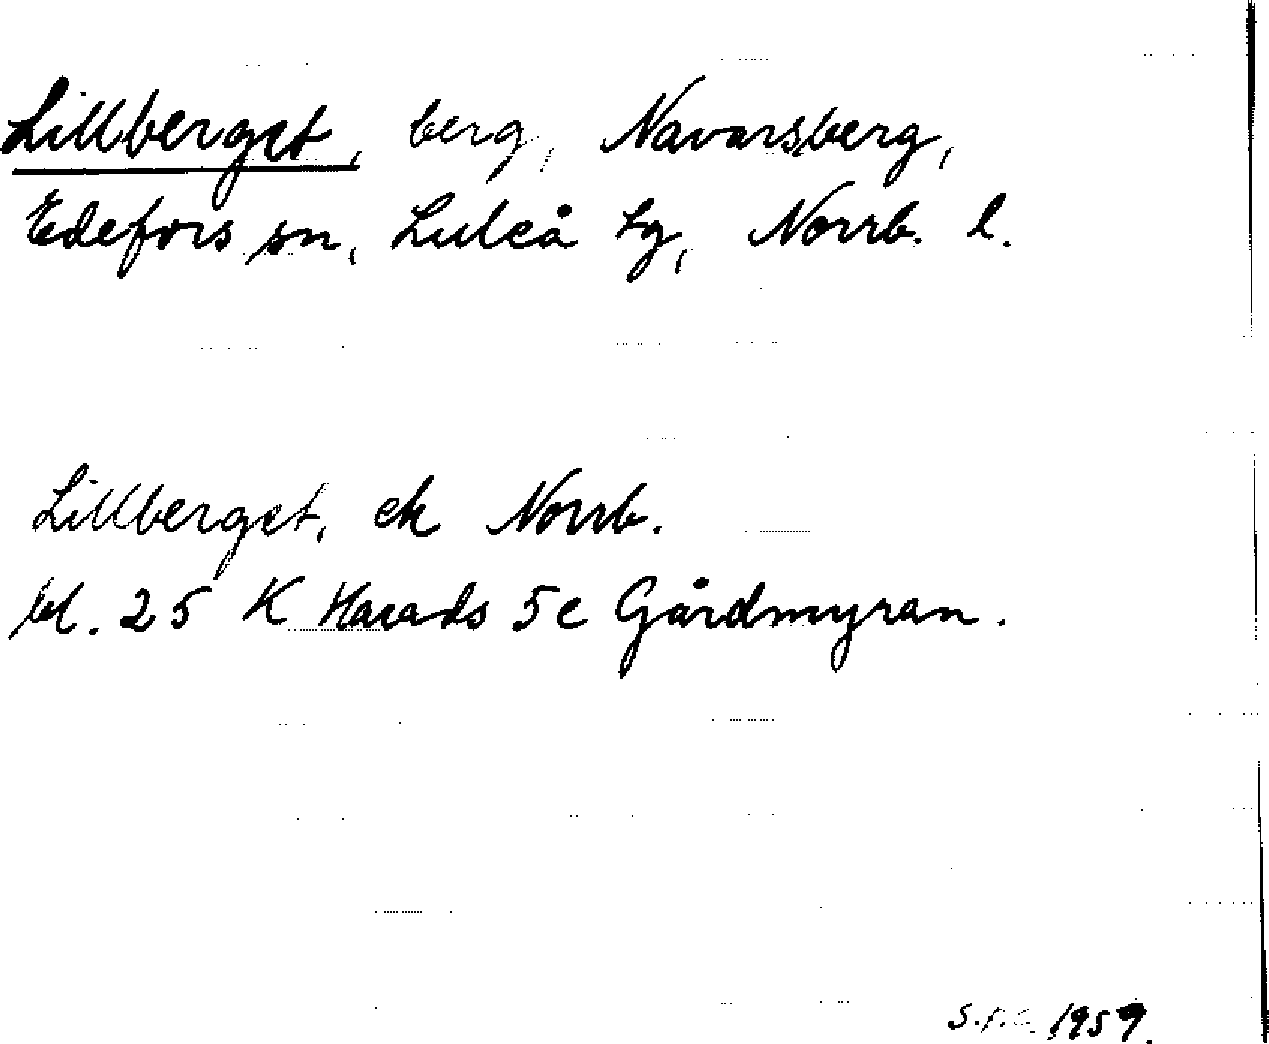 Lillberget, berg, Navarsberg,
Edefors sn, Luleå tg, Norrb. l.
Lillberget, ek Norrb.
bl. 25 K Harads 5c Gårdmyran.
1959.